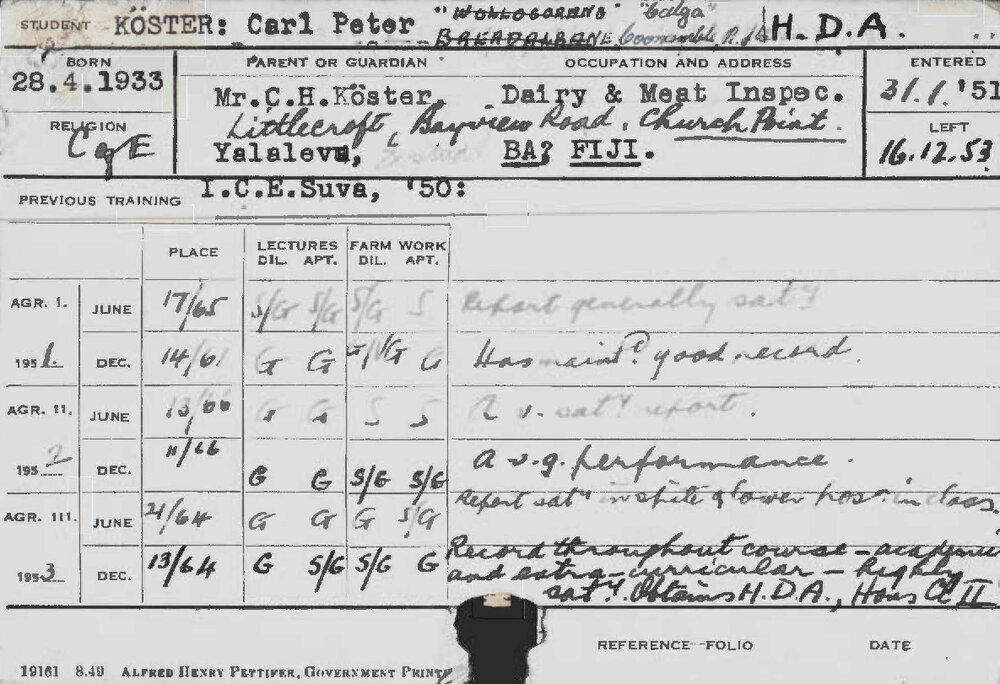 STUDENT KÖSTER: Carl Peter "WOLLOGORANG" "Calga" H.D.A.
BREADALBANE Coonamble
BORN PARENT OR GUARDIAN OCCUPATION AND ADDRESS ENTERED
28.4.1933 Mr.C.H.Köster, Dairy & Meat Inspec. 31.1.'51
RELIGION Littlecroft, Bayview Road, Church Point. LEFT
C of E Yalalevu, BA? FIJI. 16.12.53
PREVIOUS TRAINING I.C.E.Suva, '50:
PLACE LECTURES FARM WORK
DIL. APT. DIL. APT.
AGR. I. JUNE 17/65 S/G S/G S/G S Report generally saty
1951. DEC. 14/61 G G G/VG G Has maintd good record.
AGR. II. JUNE 13/66 G G S S A v. saty report.
1952 DEC. 11/66 G G S/G S/G A v.g. performance.
AGR. III. JUNE 21/64 G G G S/G Report saty in spite of lower posn. in class.
1953 DEC. 13/64 G S/G S/G G Record throughout course – academic
and extra-curricular – highly
saty. Obtains H.D.A., Hons Cl II
REFERENCE--FOLIO DATE
19161 8.49 ALFRED HENRY PETTIFER, GOVERNMENT PRINT